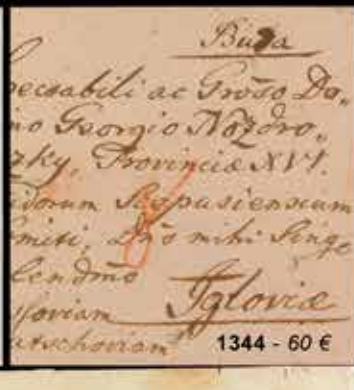 Buda
pectabili ac Groso Do„
no Georgio Nozdro„
zky, Provinciæ XVI.
idorum Scepusiensium
miti, Dno mihi Singe
lendmo
soviam Igloviæ
utschoviam
1344 - 60 €